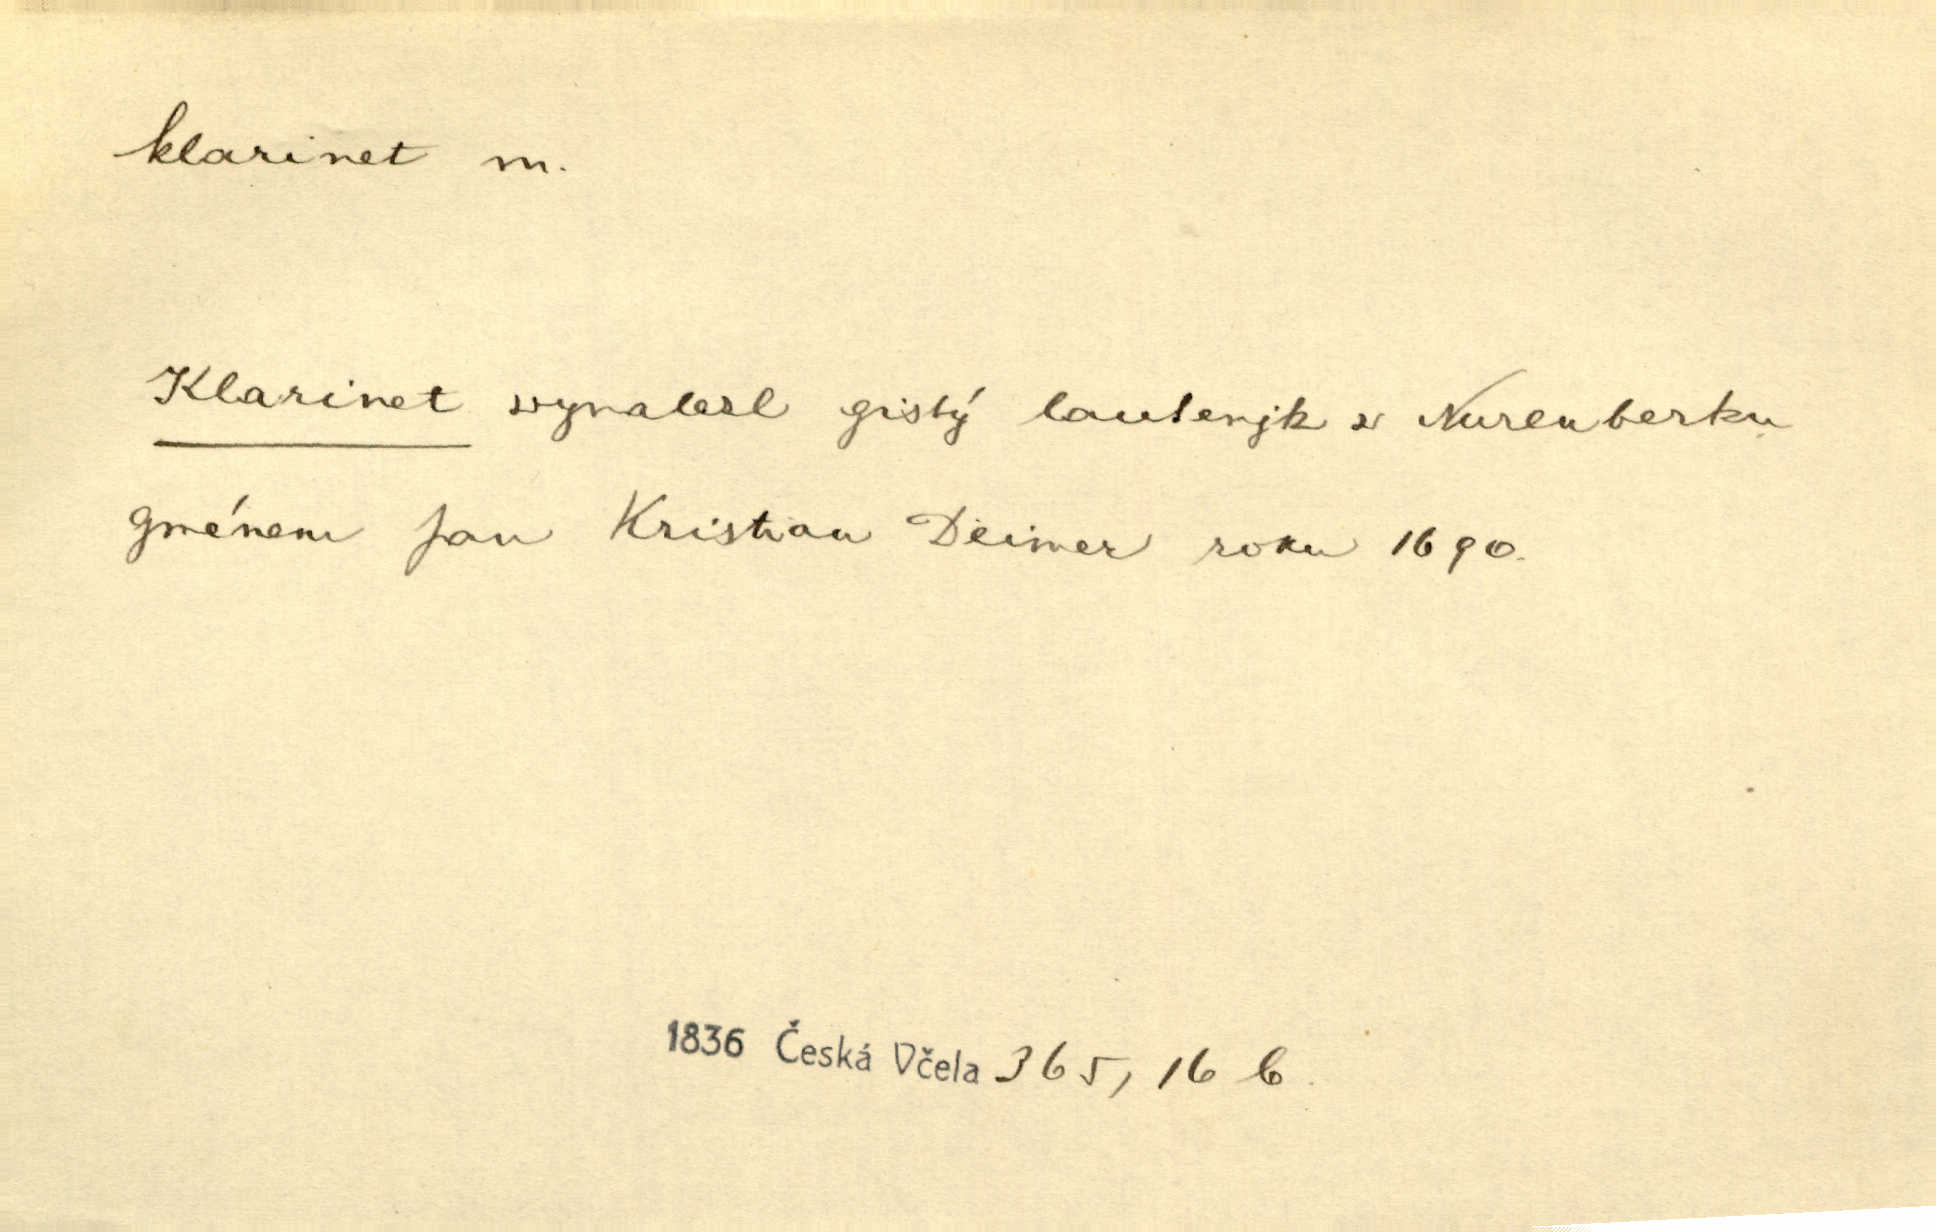 klarinet m.
Klarinet wynalezl gistý lautenjk w Nurenberku
gménem Jan Kristian Deimer roku 1690.
1836 Česká Včela 365, 16 b.